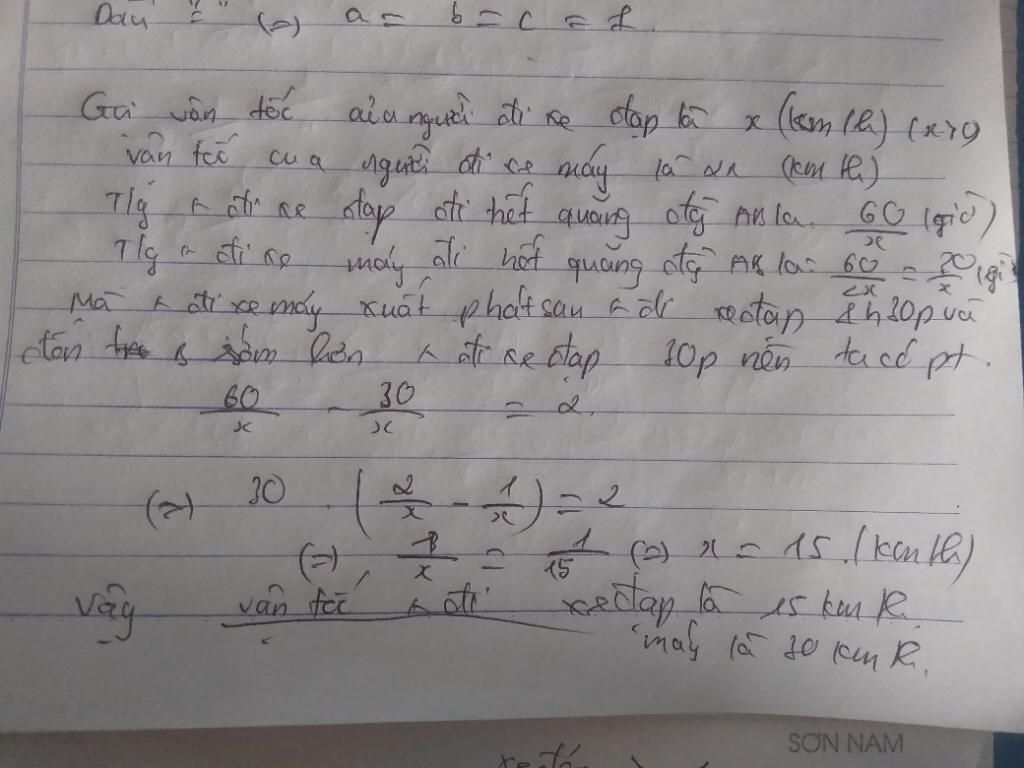 Dấu "=" (=) a = b = c = 1.
Gọi vận tốc của người đi xe đạp là x (km/h) (x>0)
vận tốc của người đi xe máy là 2x (km/h)
T/g n đi xe đạp đi hết quãng đg AB là 60/x (giờ)
T/g n đi xe máy đi hết quãng đg AB là: 60/2x = 30/x (giờ)
Mà n đi xe máy xuất phát sau n đi xe đạp 1h30p và
đến B sớm hơn n đi xe đạp 30p nên ta có pt.
60/x - 30/x = 2.
(=) 30 . (2/x - 1/x) = 2
(=) 1/x = 1/15 (=) x = 15. (km/h)
Vậy vận tốc n đi xe đạp là 15 km/h.
máy là 30 km/h.
SƠN NAM